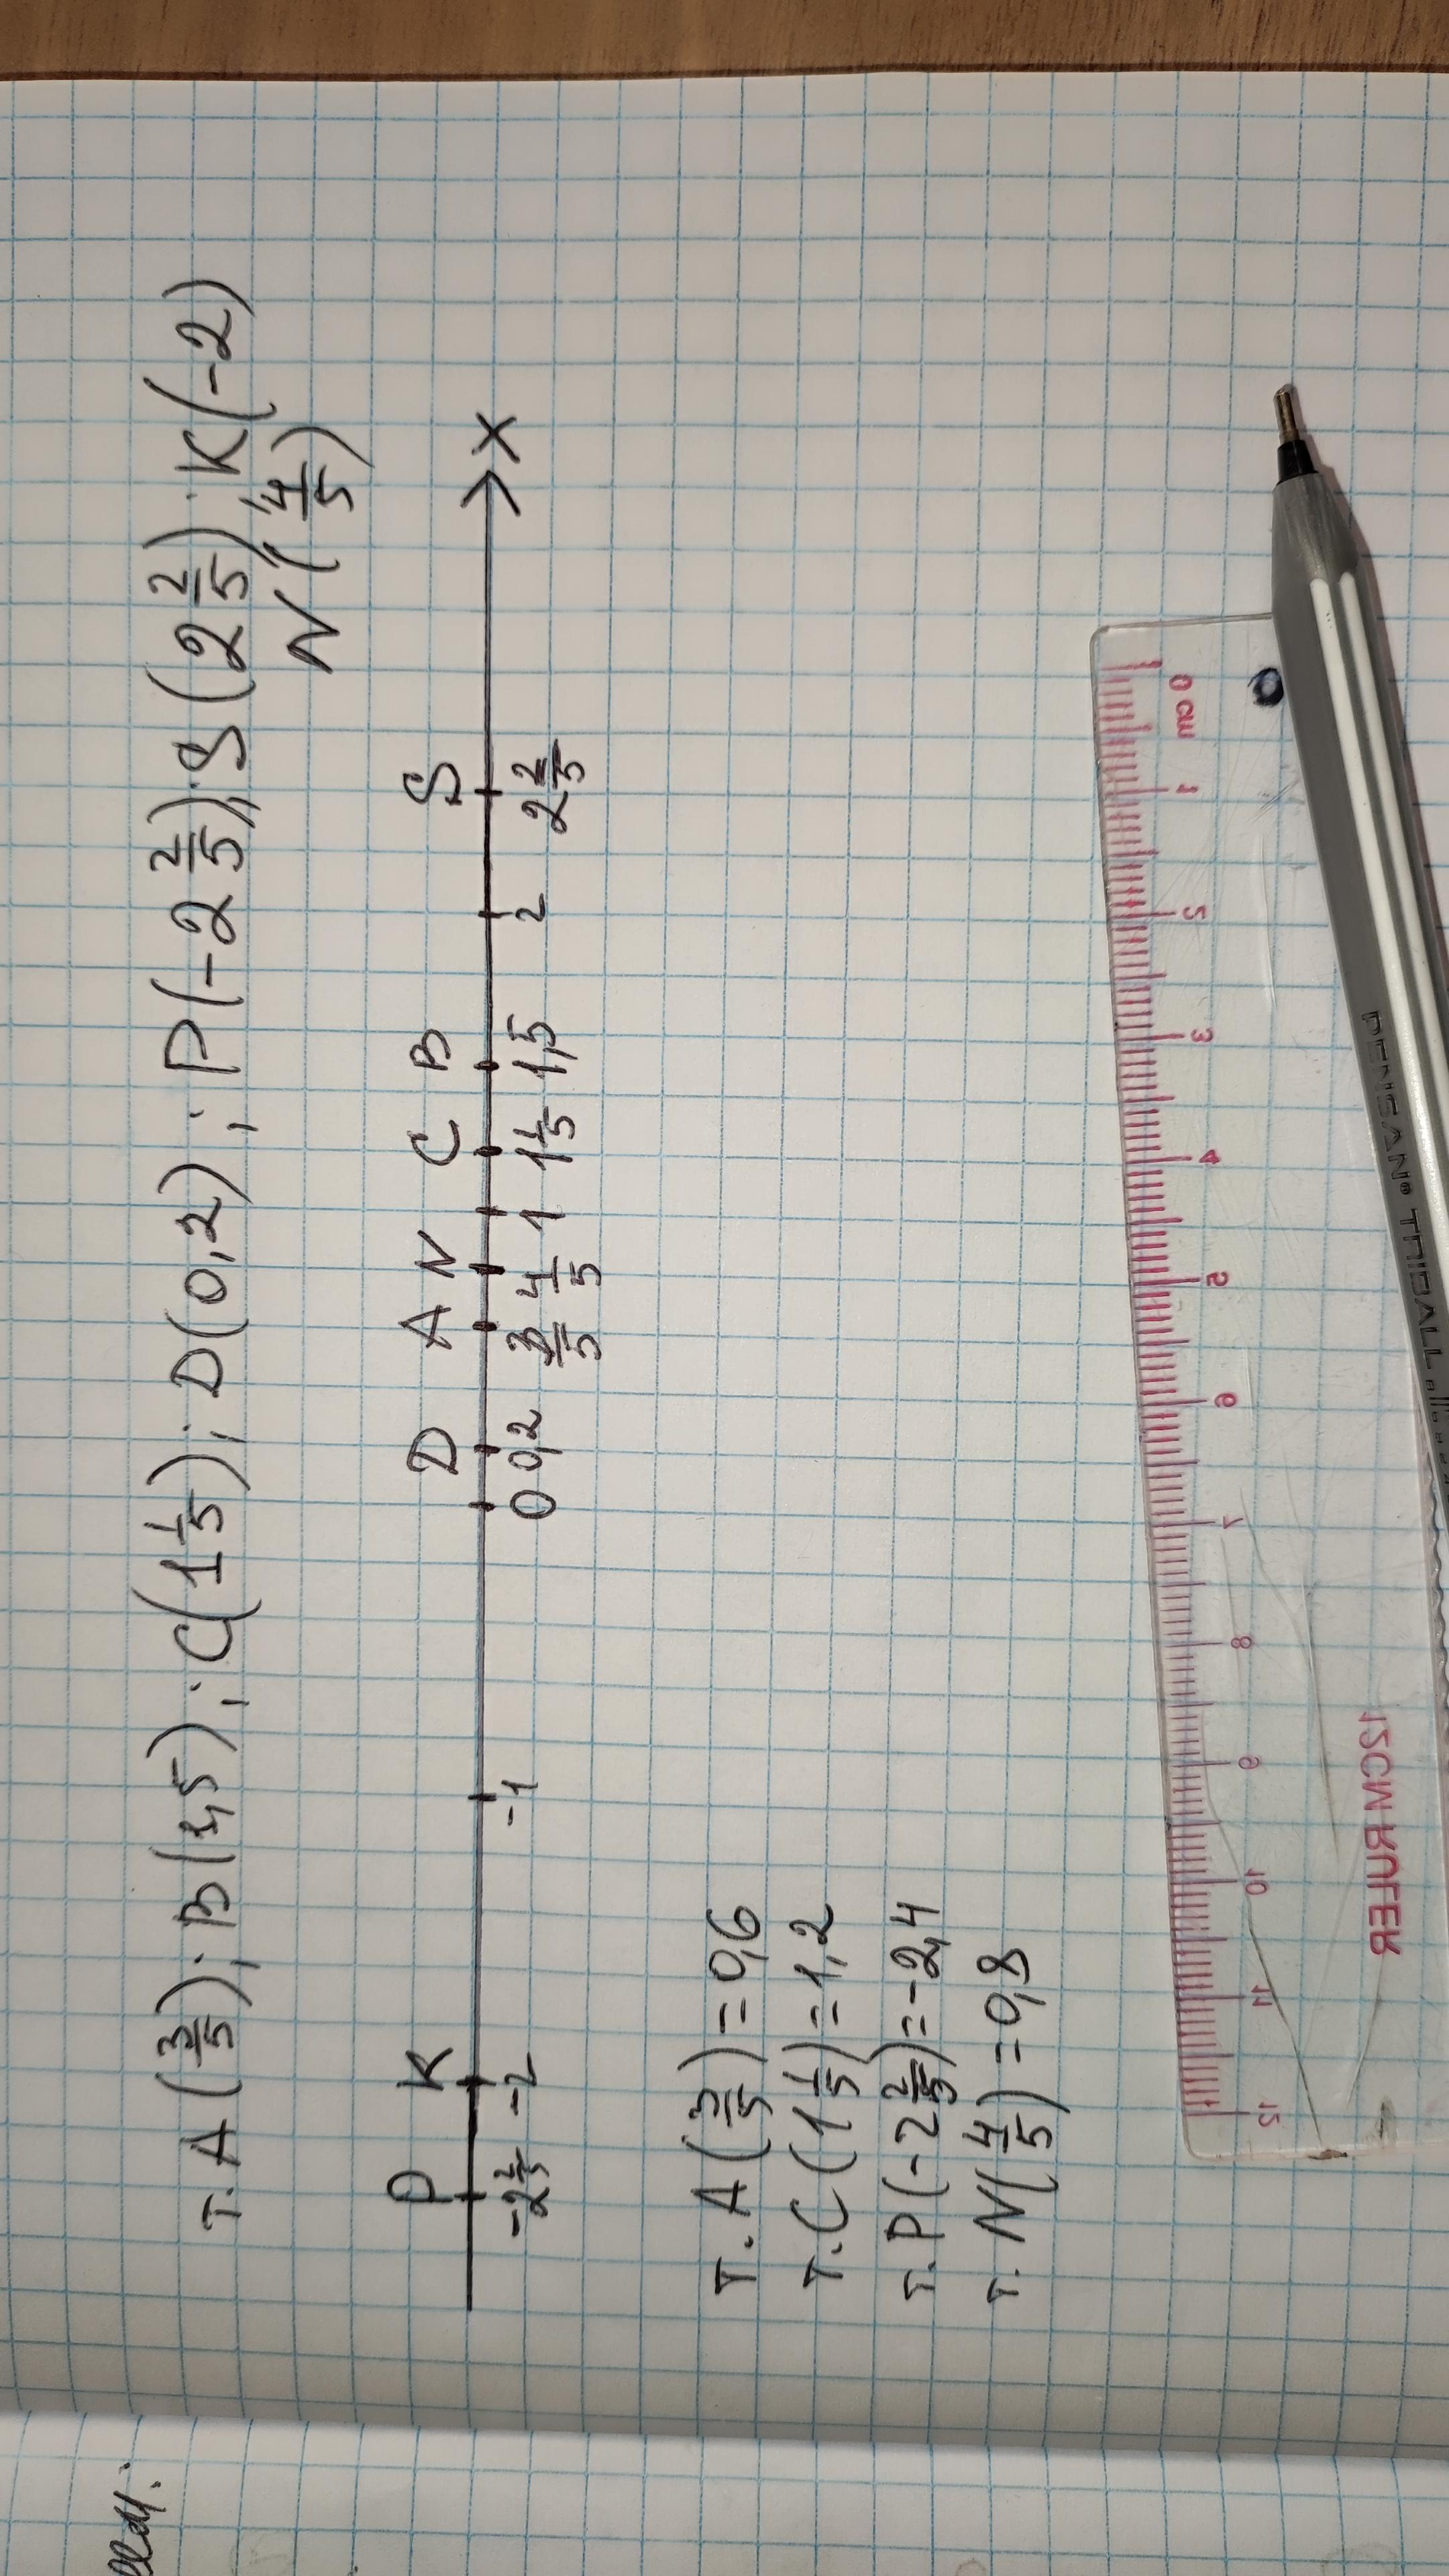 т. A (3/5); B(1,5); C(1 1/5); D(0,2); P(-2 2/5); S(2 2/5); K(-2)
N(4/5)
P K D A N C B S
-2 2/5 -2 -1 0 0,2 3/5 4/5 1 1 1/5 1,5 2 2 2/5 X
т. A(3/5) = 0,6
т. C(1 1/5) = 1,2
т. P(-2 2/5) = -2,4
т. N(4/5) = 0,8
0 см 1 2 3 4 5 6 7 8 9 10 11 12
12CM RAFER
PENSAN® TRIBALL